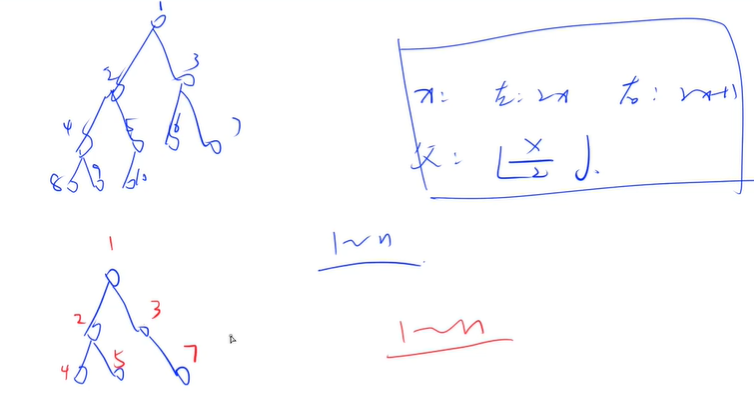 1
2 3
4 5 6 7
8 9 10
x: 左: 2x 右: 2x+1
父: ⌊x/2⌋.
1~n
1
2 3
4 5 7
1~n